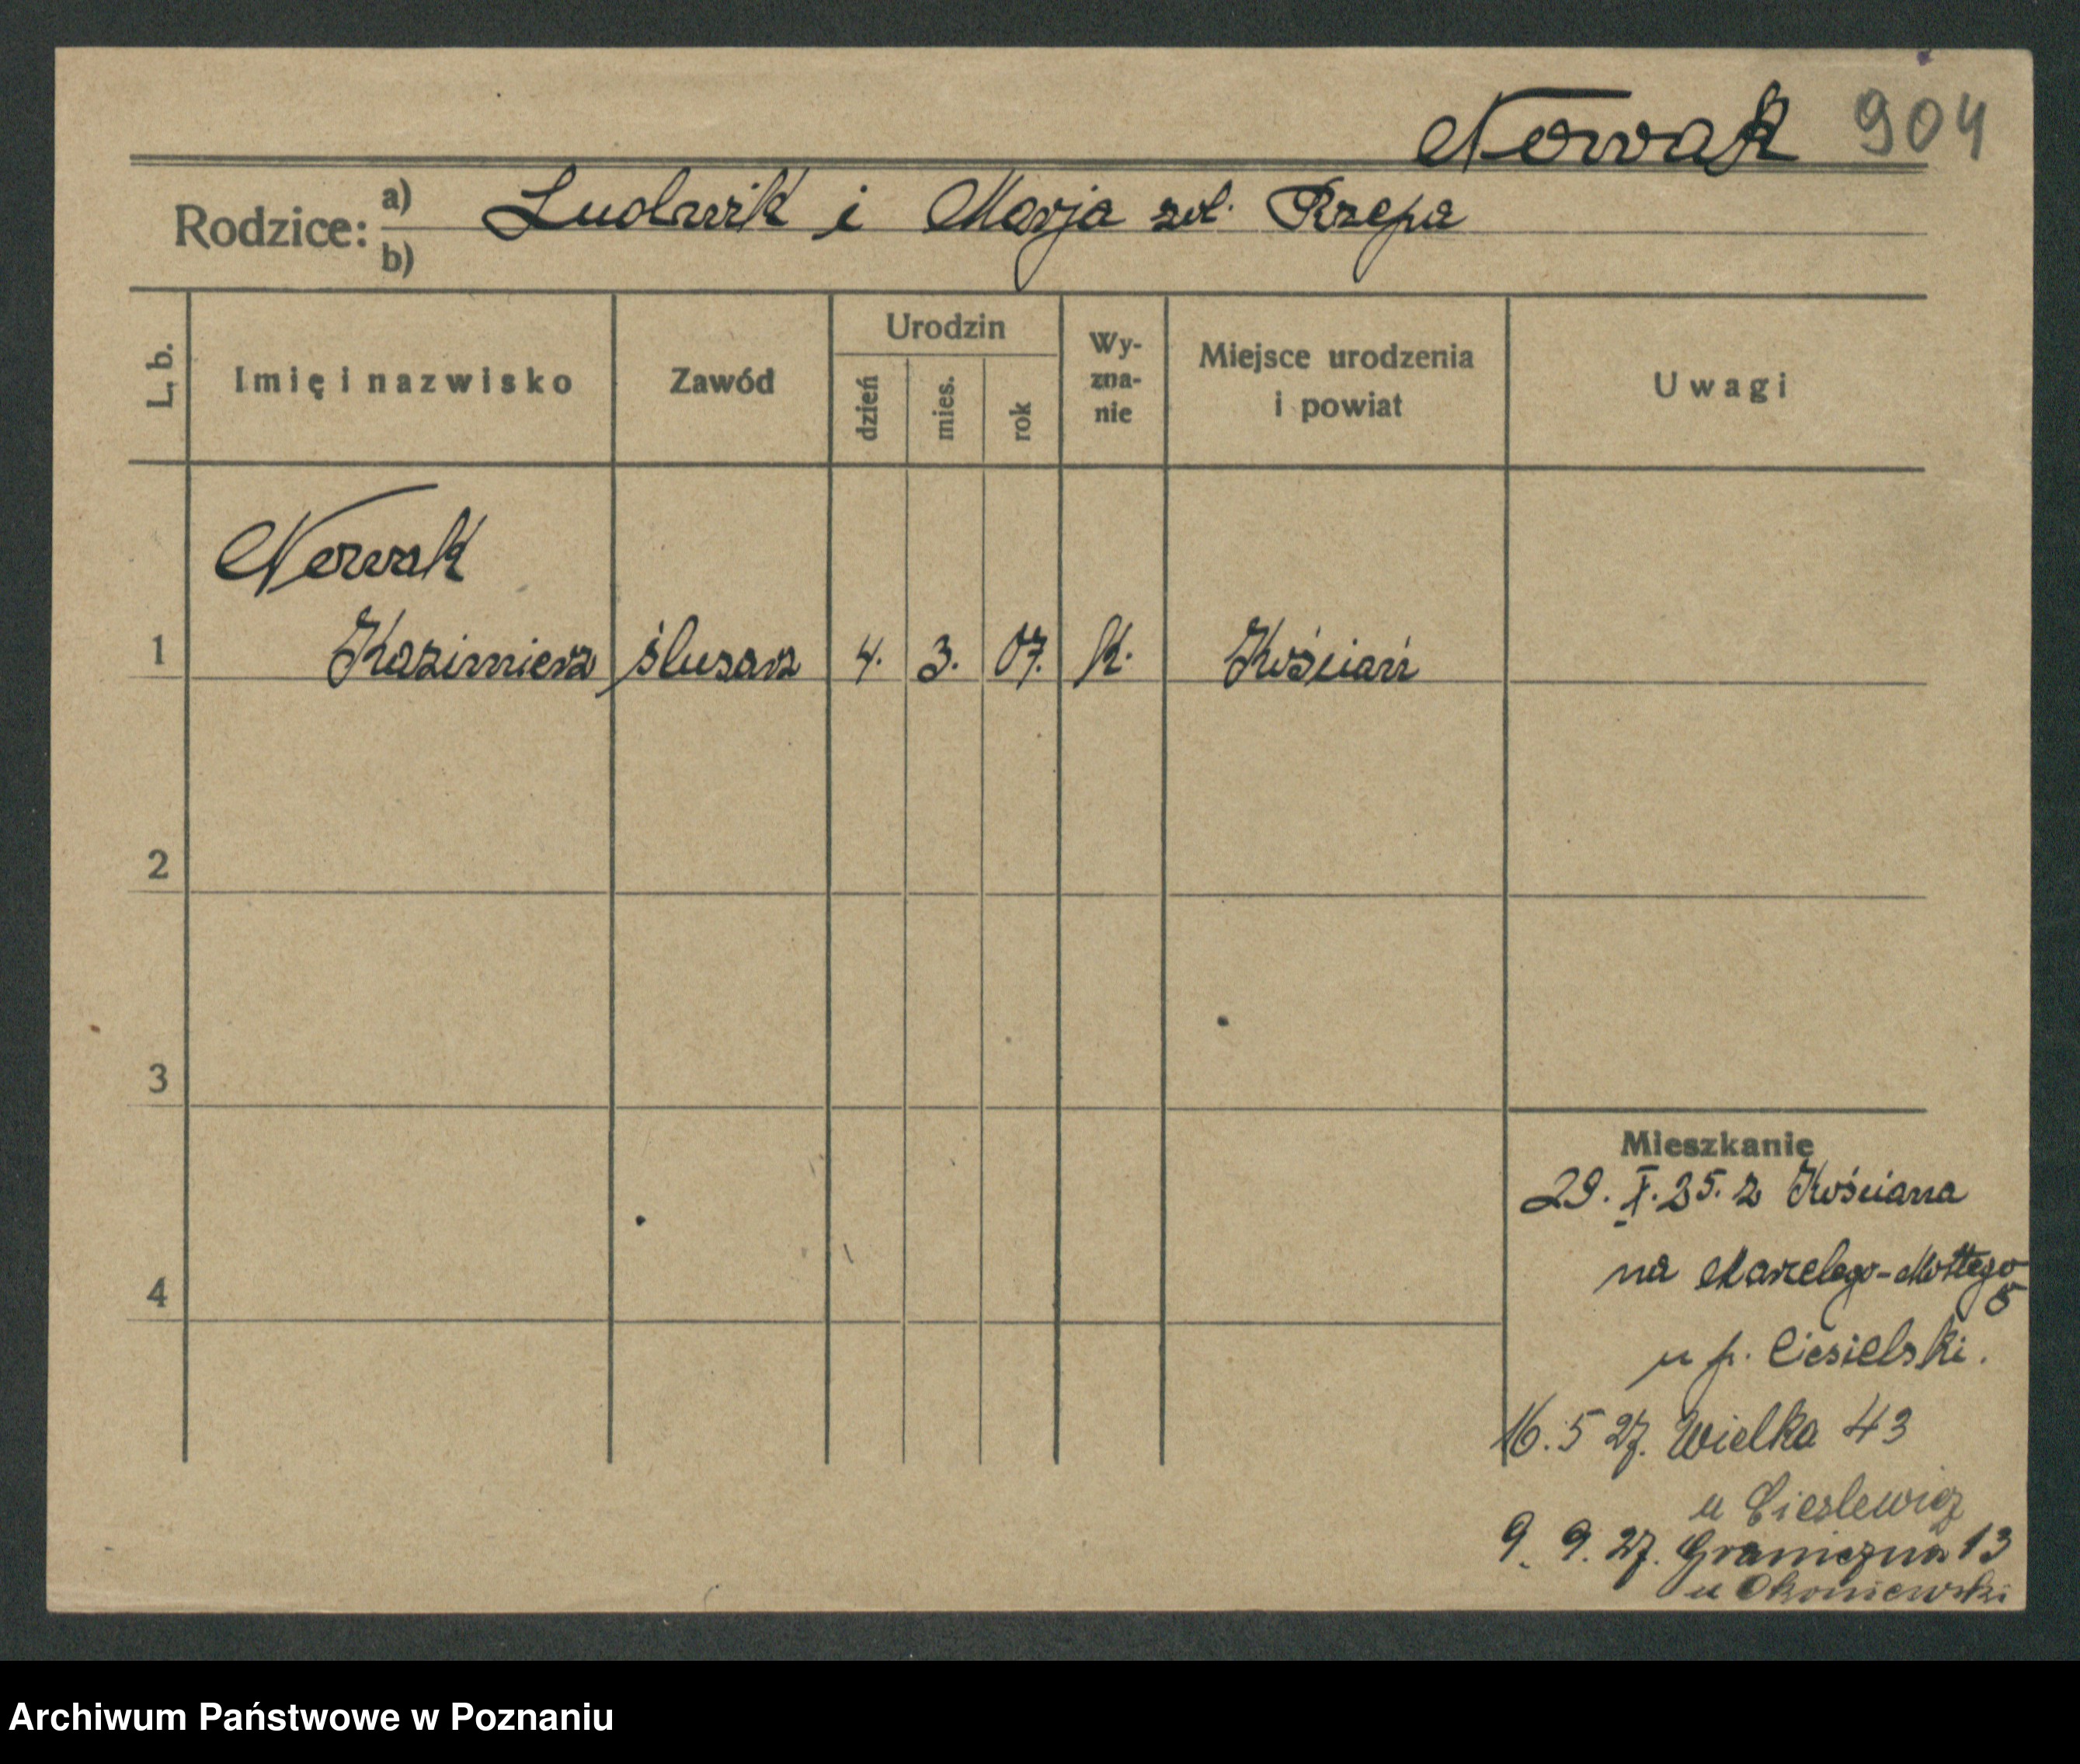 Nowak 904
Rodzice: a) Ludwik i Marja zd. Rzepa
b)
L. b. Imię i nazwisko Zawód Urodzin dzień mies. rok Wy-zna-nie Miejsce urodzenia i powiat Uwagi
Nowak
1 Kazimierz ślusarz 4. 3. 07. k. Kościan
2
3
4
Mieszkanie
29. X. 25. z Kościana
na Marcelego-Mottego
5
u p. Ciesielski.
16.5 27. Wielka 43
u Cieslewicz
9. 9. 27. Graniczna 13
u Okoniewski
Archiwum Państwowe w Poznaniu